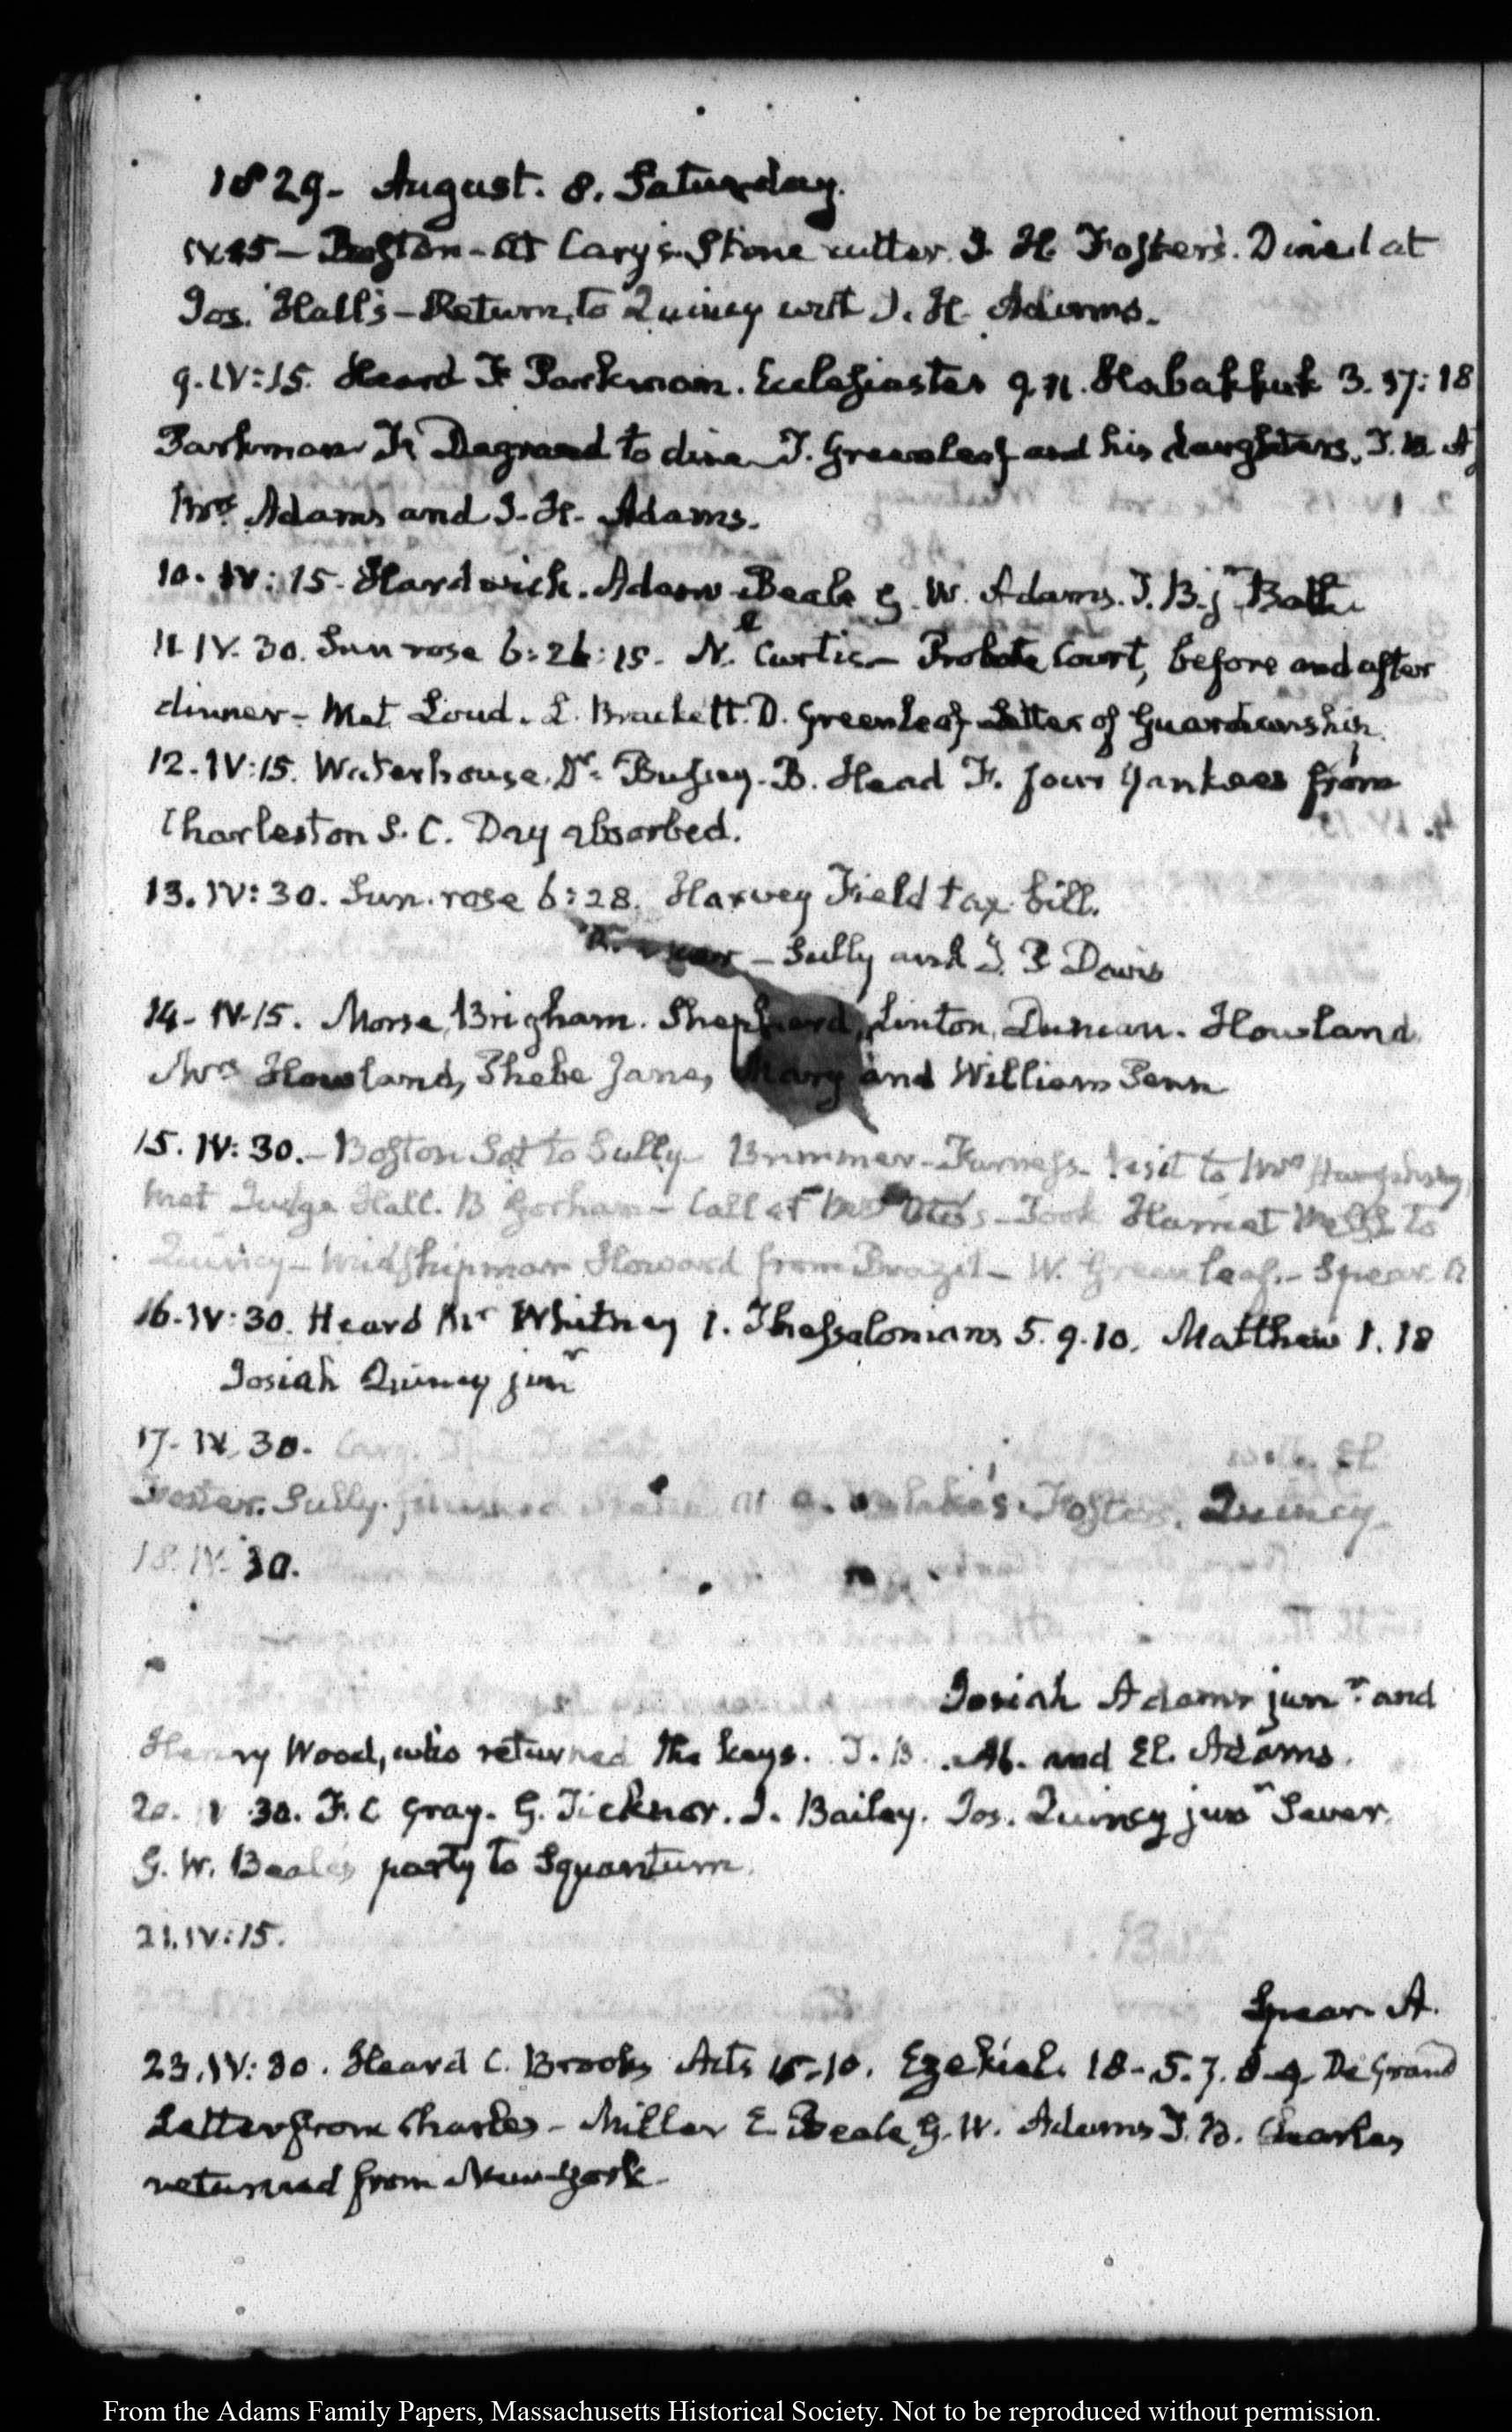 1829. August. 8. Saturday.
IV.45 — Boston - At Cary's Stone cutter. I. H. Foster's. Dined at
Jos. Hall's — Return to Quincy with I. H. Adams.
9. IV:15. Heard F Parkman. Ecclesiastes 9.11. Habakkuk 3. 17:18
Parkman Fr Degrand to dine. T. Greenleaf and his daughters. T. B. A
Mrs Adams and I. H. Adams.
10. IV:15. Hardwick. Adam Beale G. W. Adams. T. B. jr
11. IV. 30. Sun rose 6:26:15. N. Curtis — Probate Court, before and after
dinner — Met Loud. L. Brackett. D. Greenleaf Letter of Guardianship.
12. IV:15. Waterhouse. Dr Bussey. B. Head F. four Yankees from
Charleston S. C. Day absorbed.
13. IV:30. Sun rose 6:28. Harvey Field tax bill.
— Sully and I. P Davis
14. IV.15. Morse, Brigham. Shephard, Linton, Duncan. Howland
Mrs Howland, Phebe Jane, Mary and William Penn
15. IV:30. — Boston Sat to Sully Brimmer — Furness — Visit to Mrs
met Judge Hall. B Gorham — Call at Mrs — Took Harriet Welsh to
Quincy — Midshipman Howard from Brazil — W. Greenleaf. — Spear A
16. IV:30. Heard Mr Whitney 1. Thessalonians 5. 9.10. Matthew 1. 18
Josiah Quincy junr
17. IV. 30. Cary.
Foster. Sully. finished at Foster. Quincy
18. IV. 30.
Josiah Adams junr and
Henry Wood, who returned the keys. T. B. and El. Adams.
20. 30. F. C Gray. G. Ticknor. I. Bailey. Jos. Quincy junr Sever.
G. W. Beale's party to Squantum.
21. IV:15.
Spear A.
23. IV:30. Heard C. Brooks Acts 15.10. Ezekiel. 18 - 5. 7. 8-9 De Grand
Letter from Charles — Miller E Beale G. W. Adams T. B. Charles
returned from New-York.
From the Adams Family Papers, Massachusetts Historical Society. Not to be reproduced without permission.